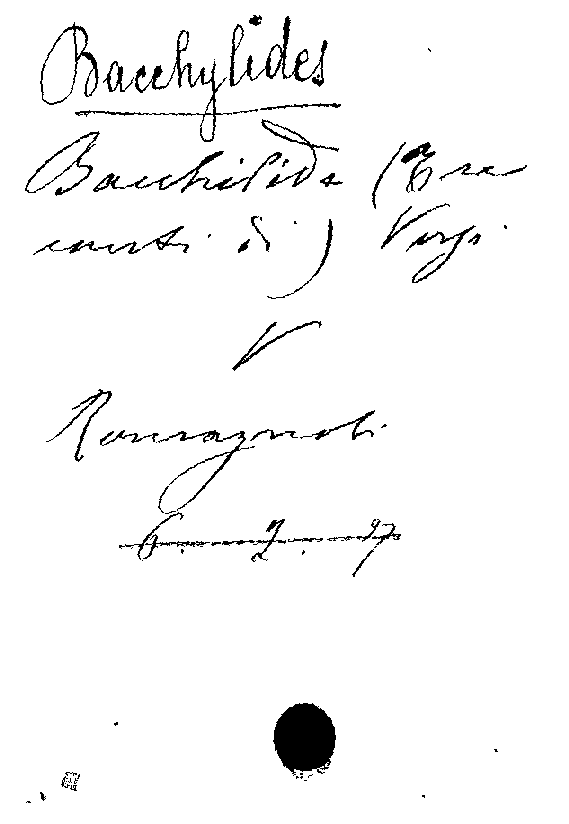 Bacchylides
Bacchilide (Tre
canti di) Versi
V
Romagnoli
6. 2. 97